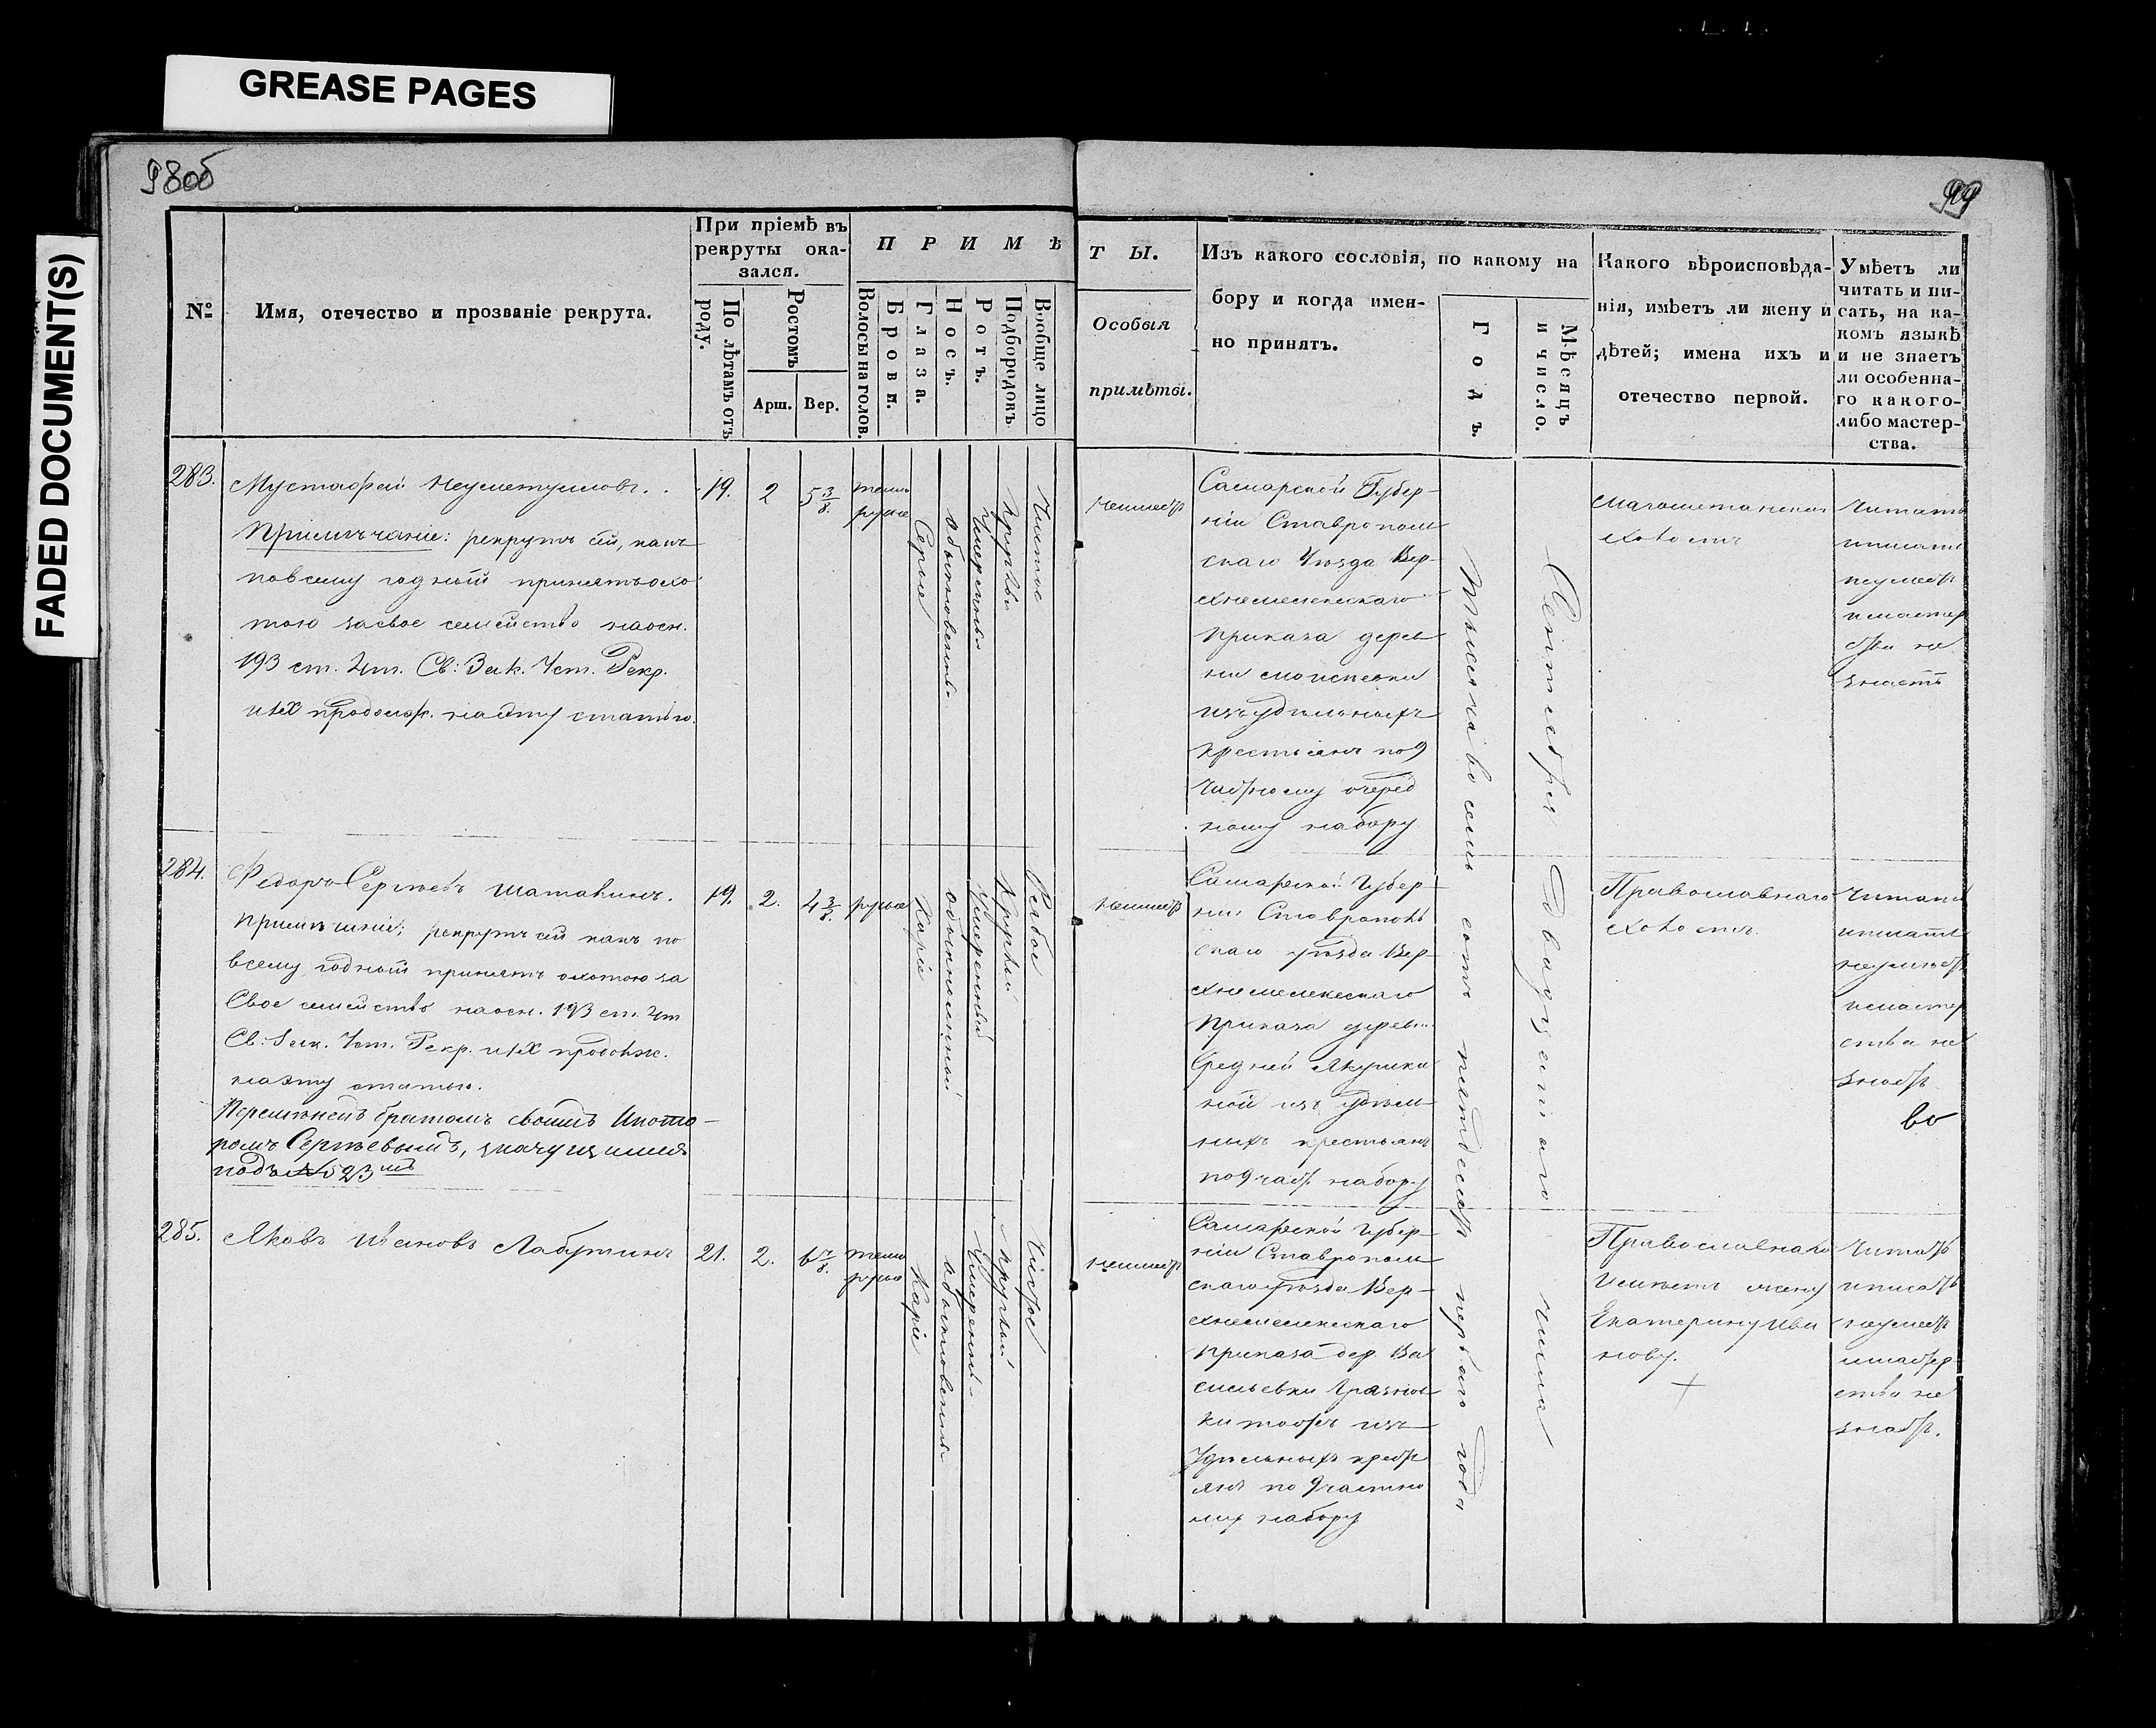 GREASE PAGES
FADED DOCUMENT(S)
98об
99
№
Имя, отечество и прозваніе рекрута.
При пріемѣ въ
рекруты ока-
зался.
По лѣтамъ отъ
роду.
Ростомъ
Арш.
Вер.
ПРИМѢ
Волосы на голов.
Брови.
Глаза.
Носъ.
Ротъ.
Подбородокъ
Вообще лицо
ТЫ.
Особыя
примѣты.
Изъ какого сословія, по какому на
бору и когда имен-
но принятъ.
Годъ.
Мѣсяцъ
и число.
Какого вѣроисповѣда-
нія, имѣетъ ли жену и
дѣтей; имена ихъ и
отечество первой.
Умѣетъ ли
читать и пи-
сать, на ка-
комъ языкѣ
и не знаетъ
ли особенна-
го какого-
либо мастер-
ства.
283.
Мустафей
Примѣчаніе: рекрутъ сей, какъ
повсему годный принятъ охо
тою за свое семейство на осн.
193 ст. 4 т. Св: Зак. Уст. Рекр.
и IX продолж. на эту статью.
19.
2
5 3/8.
темно
русые
Серые
обыкновенные
умеренный
круглый
Чистое
неимеет
Самарской Губер-
ніи Ставрополь
скаго Уезда Вер-
хнемелекескаго
приказа дерев
ни
изъ удельныхъ
крестьянъ по 9
частному очеред
ному набору
Тысяча восемь сотъ пятьдесятъ перваго года
Сентября Двадцатого числа
Магометанскаго
холостъ
Читать
и писать
неумеетъ
и мастер
ства не
знаетъ
284.
Федоръ Сергѣевъ Шатакинъ.
Примѣчаніе; рекрутъ сей какъ по
всему годный принятъ охотою за
Свое семейство на осн. 193 ст. 4 т
Св: Зак. Уст. Рекр. и IX продолж.
на эту статью.
Перемѣненъ братомъ своимъ
Сергѣевымъ, значущимся
подъ № 523мъ
19.
2.
4 3/8.
русые
Каріе
обыкновенной
Умеренный
Круглый
Рябое
неимеет
Самарской Губер-
ніи Ставрополь
скаго уезда Вер-
хнемелекескаго
приказа дерев
Средней Якушки
ной изъ удель
ныхъ крестьянъ
по 9 част. набору
Православнаго
холостъ.
Читать
и писать
неумеетъ
и мастер
ства не
знаетъ
во
285.
Яковъ Ивановъ Лабутинъ
21.
2.
6 7/8.
темно
русые
Каріе
обыкновенный
Умеренный
круглый
Чистое
неимеет
Самарской Губер-
ніи Ставрополь
скаго уезда Вер-
хнемелекескаго
приказа дер. Ва
сильевки Грязной
изъ
Удельныхъ кресть
янъ по 9 частно
му набору
Православнаго
Имѣетъ жену
Екатерину Ива
нову.
Читать
и писать
неумеетъ
и мастер
ства не
знаетъ.